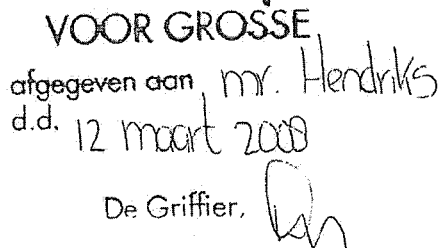 VOOR GROSSE
afgegeven aan mr. Hendriks
d.d. 12 maart 2008
De Griffier,